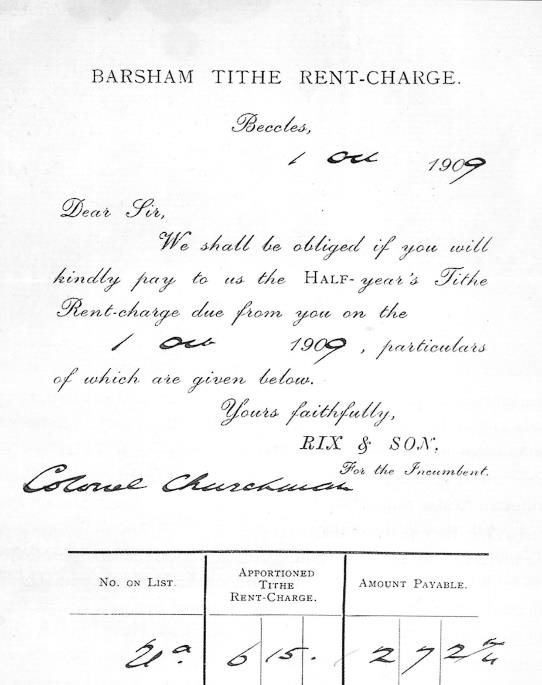 BARSHAM TITHE RENT-CHARGE.
Beccles,
1 Oct 1909
Dear Sir,
We shall be obliged if you will
kindly pay to us the HALF-year's Tithe
Rent-charge due from you on the
1 Oct 1909, particulars
of which are given below.
Yours faithfully,
RIX & SON,
For the Incumbent.
Colonel Churchman
NO. ON LIST. APPORTIONED TITHE RENT-CHARGE. AMOUNT PAYABLE.
6 15 . 2 7